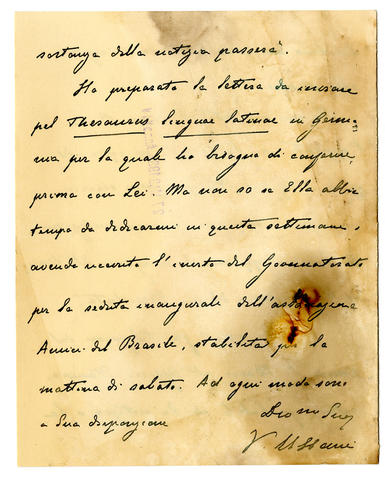 sostanza della notizia passerà.
Ho preparato la lettera da inviare
pel Thesaurus linguae latinae in Germa-
nia per la quale ho bisogno di conferire
prima con Lei. Ma non so se Ella abbia
tempo da dedicarmi in questa settimana,
avendo ricevuto l'invito del Governatorato
per la seduta inaugurale dell'associazione
Amici del Brasile, stabilita per la
mattina di sabato. Ad ogni modo sono
a Sua disposizione
V. Ussani